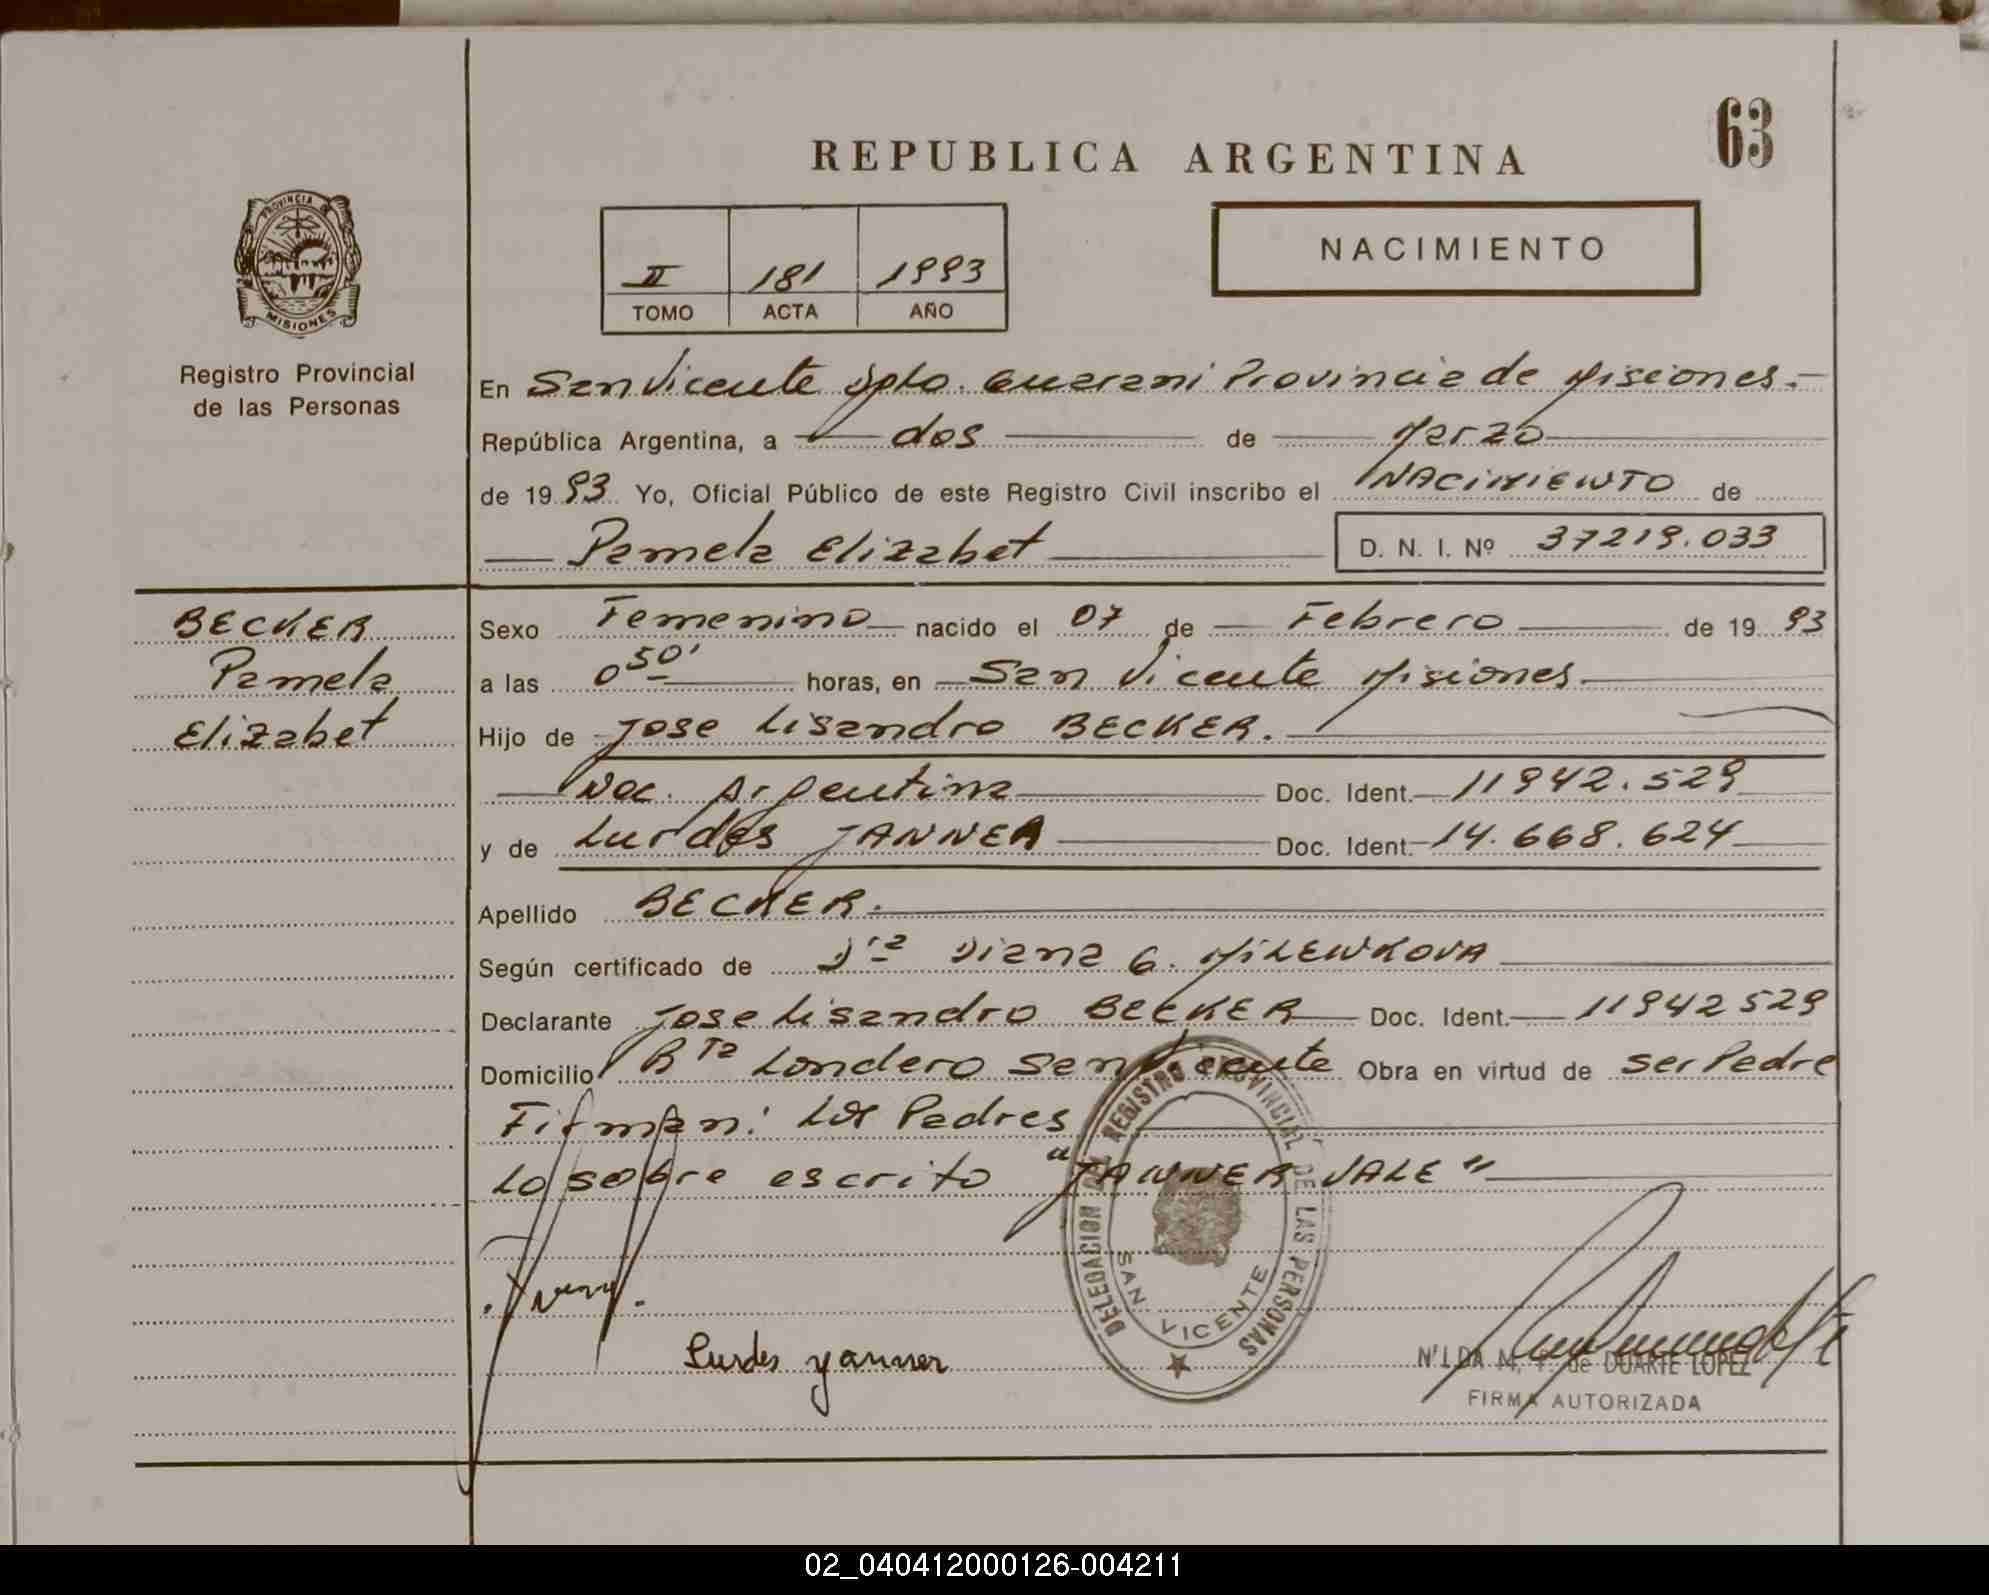 63
REPUBLICA ARGENTINA
PROVINCIA DE
MISIONES
Registro Provincial
de las Personas
II 181 1993
TOMO ACTA AÑO
NACIMIENTO
En San Vicente Dpto. Guarani Provincia de Misiones.
República Argentina, a dos de Marzo
de 1993 Yo, Oficial Público de este Registro Civil inscribo el NACIMIENTO de
Pamela Elizabet D. N. I. Nº 37219.033
BECKER
Pamela
Elizabet
Sexo Femenino nacido el 07 de Febrero de 1993
a las 0 50' horas, en San Vicente Misiones.
Hijo de Jose Lisandro BECKER.
Nac. Argentina Doc. Ident. 11942.529
y de Lurdes JANNER Doc. Ident. 14.668.624
Apellido BECKER.
Según certificado de Dra Diana G. MILENKOVA
Declarante Jose Lisandro BECKER Doc. Ident. 11942529
Domicilio Bta Londero San Vicente Obra en virtud de ser Padre
Firman: Los Padres
Lo sobre escrito "JANNER VALE"
DELEGACION DEL REGISTRO PROVINCIAL DE LAS PERSONAS
SAN VICENTE
Lurdes yanner
NILDA M. F. de DUARTE LOPEZ
FIRMA AUTORIZADA
02_040412000126-004211